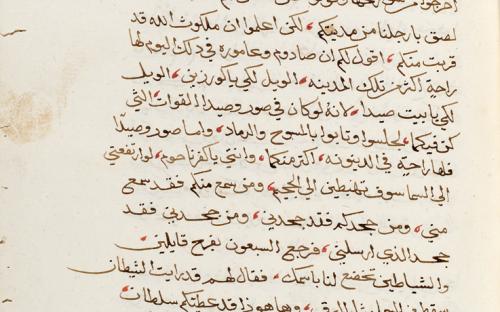 لصق بارجلنا من مدينتكم لكن اعلموا ان ملكوت الله قد
قربت منكم اقول لكم ان صادوم وعاموره في ذلك اليوم لها
راحة اكثر من تلك المدينه الويل لكي ياكورزين الويل
لكي يا بيت صيدا لانه لو كان في صور وصيدا القوات التي
كن فيكما لجلسوا وتابوا بالمسوح والرماد واما صور وصيدا
فلها راحة في الدينونه اكثر منكما وانتي ياكفرناحوم لو ارتفعتي
الي السما سوف تهبطين الي الجحيم ومن سمع منكم فقد سمع
مني ومن جحدكم فقد جحدني ومن جحدني فقد
جحد الذي ارسلني فرجع السبعون بفرح قايلين
والشياطين تخضع لنا باسمك فقال لهم قد رايت الشيطان
وها هوذا قد عطيتكم سلطان